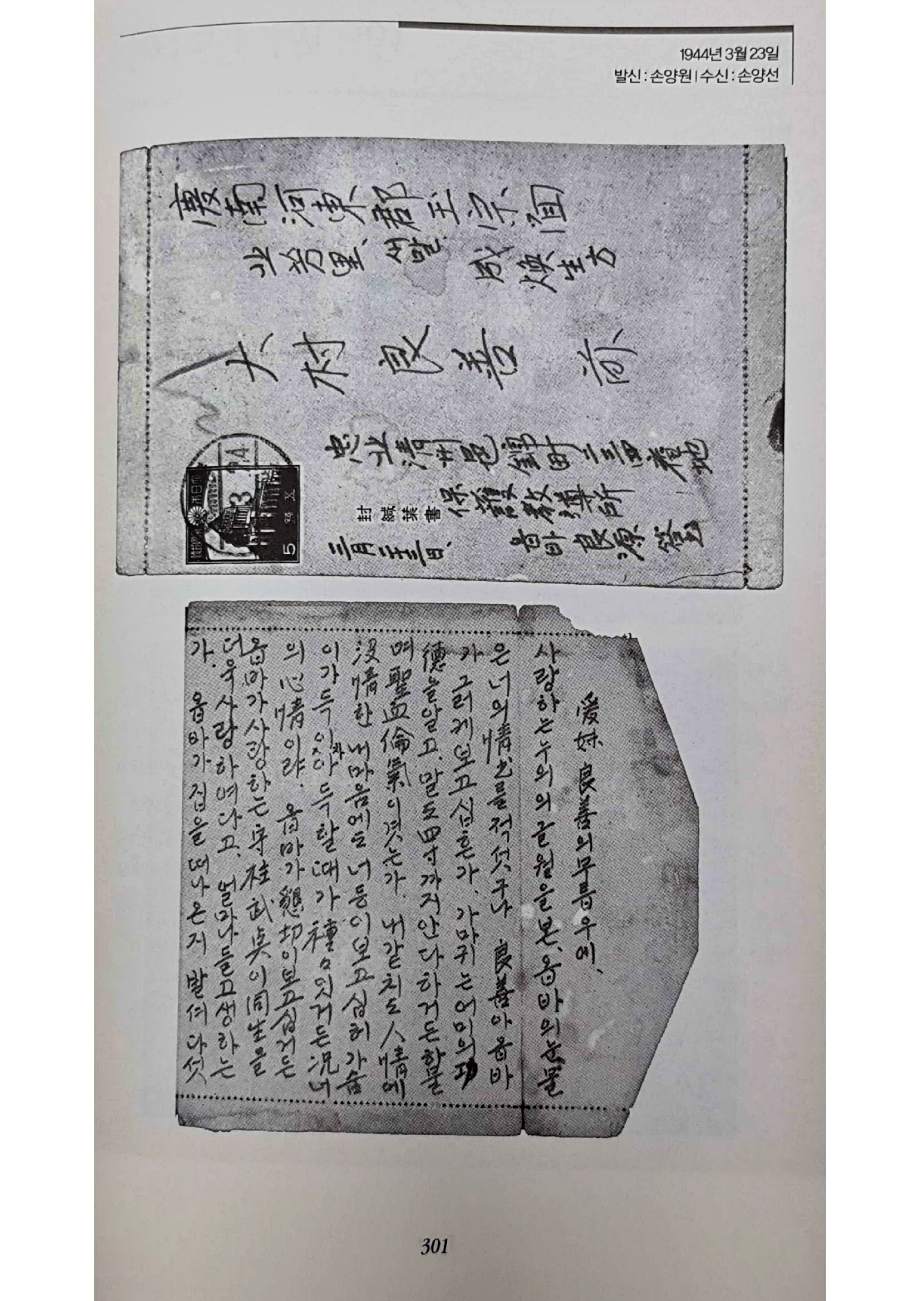 1944년 3월 23일
발신 : 손양원 | 수신 : 손양선
慶南河東郡玉宗面
北芳里 成煥生方
大村良善 前
忠北淸州邑錦町二三四番地
保護敎導所
옵바 良源 答
三月二十三日、
封緘葉書
5
愛妹 良善의무릅우에、
사랑하는누의의글월을본、옵바의눈물
은너의情書를적섯구나 良善아옵바
가그러케보고십흔가. 가마귀는어미의功
德을알고、말도四寸까지안다하거든하물
며聖血倫氣이겟는가. 내같치도人情에
沒情한 내마음에도너등이보고십허가슴
이가득이차아득할때가種々잇거든况너
의心情이랴. 옵바가懇切이보고십거든
옵바가사랑하는守柱武眞이同生을
더욱사랑하여다고. 얼마나들고생하는
가. 옵바가집을떠나온지 발서다섯
301